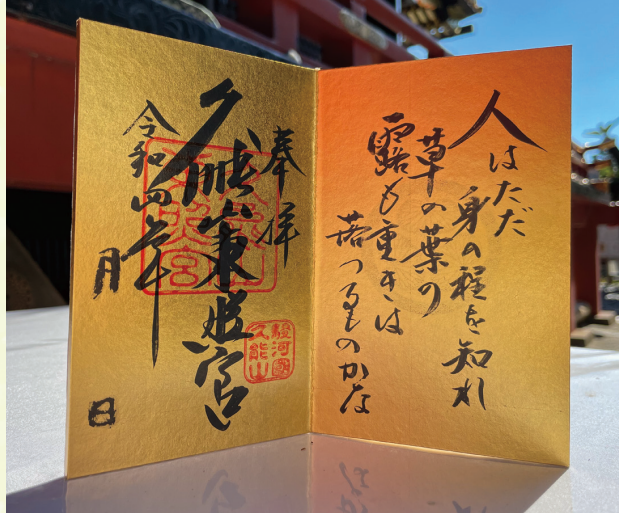 人はただ
身の程を知れ
草の葉の
露も重きは
落つるものかな
奉拝
久能山東照宮
駿河國
久能山
令和四年
月 日